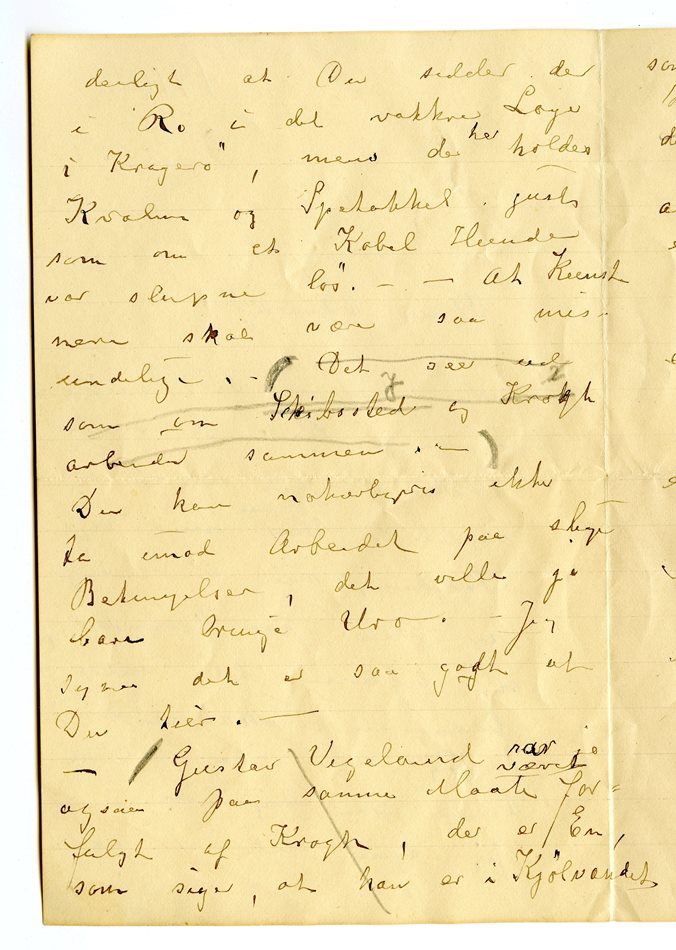 deiligt at Du sidder der
i Ro i det vakkre Loge
i Kragerø", mens der her holdes
Kvalm og Spetakkel. just
som om et Kobel Hunde
var slupne løs". – – At Kunst
nere skal være saa mis-
undelige. – ( Det seer ud
som om Schibosted og Krogh
arbeider sammen. – )
Du kan naturligvis ikke
ta imod Arbeidet paa slige
Betingelser, det ville jo
bare bringe Uro. – Jeg
synes det er saa godt at
Du tier. –
– / Gustav Vigeland var jo
været
ogsaa paa samme Maate for=
fulgt af Krogh, der er En,
som siger, at han er i Kjølvandet